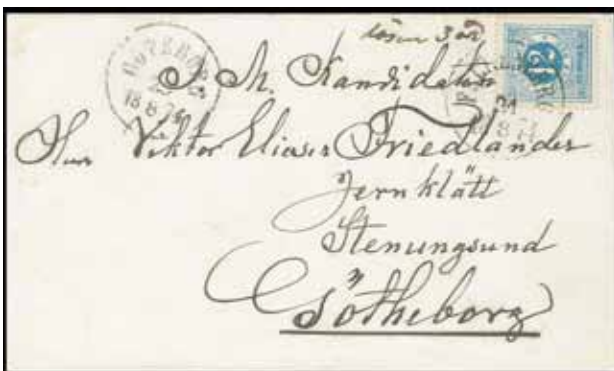 lösen 3 öre
GÖTEBORG
18 8 74
12
J. M. Kandidaten
Herr Viktor Elias Friedländer
Jernklätt
Stenungsund
Götheborg